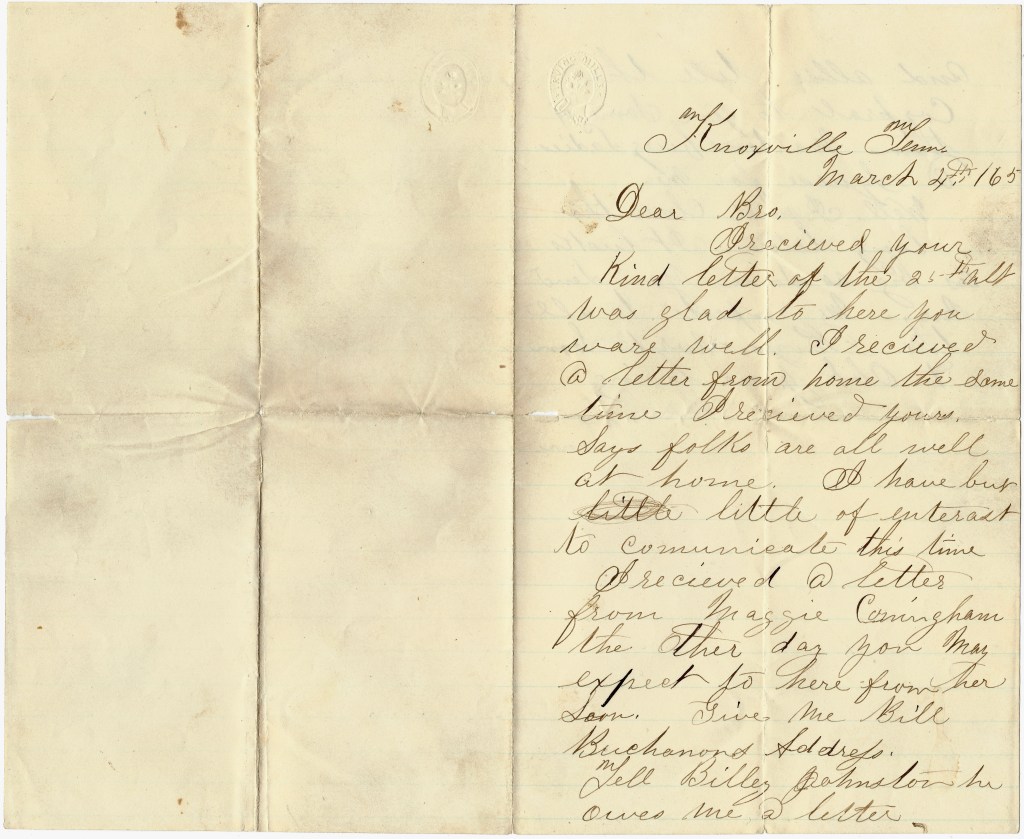 Knoxville Tenn.
March 4th, /65
Dear Bro.
I recieved your
Kind letter of the 25th ult
was glad to here you
ware well. I recieved
a letter from home the same
time I recieved yours.
Says folks are all well
at home. I have but
little little of enterast
to comunicate this time
I recieved a letter
from Maggie Coningham
the other day you May
expect to here from her
Soon. Give Me Bill
Buchanons Address.
Tell Billey Johnston he
owes me a letter